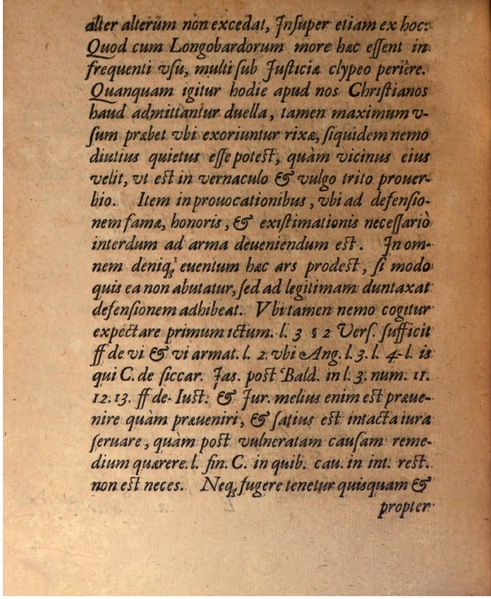 alter alterum non excedat, Insuper etiam ex hoc:
Quod cum Longobardorum more hæc essent in
frequenti vsu, multi sub Justiciæ clypeo periêre.
Quanquam igitur hodie apud nos Christianos
haud admittantur duella, tamen maximum v-
sum præbet vbi exoriuntur rixæ, siquidem nemo
diutius quietus esse potest, quàm vicinus eius
velit, vt est in vernaculo & vulgo trito prouer-
bio. Item in prouocationibus, vbi ad defensio-
nem famæ, honoris, & existimationis necessariò
interdum ad arma deueniendum est. In om-
nem deniq; euentum hæc ars prodest, si modo
quis ea non abutatur, sed ad legitimam duntaxat
defensionem adhibeat. Vbi tamen nemo cogitur
expectare primum ictum. l. 3 § 2 Vers. sufficit
ff de vi & vi armat. l. 2. vbi Ang. l. 3. l. 4. l. is
qui C. de siccar. Jas. post Bald. in l. 3. num. 11.
12. 13. ff de Iust. & Jur. melius enim est præue-
nire quàm præueniri, & satius est intacta iura
seruare, quàm post vulneratam causam reme-
dium quærere. l. fin. C. in quib. cau. in int. rest.
non est neces. Neq; fugere tenetur quisquam &
propter